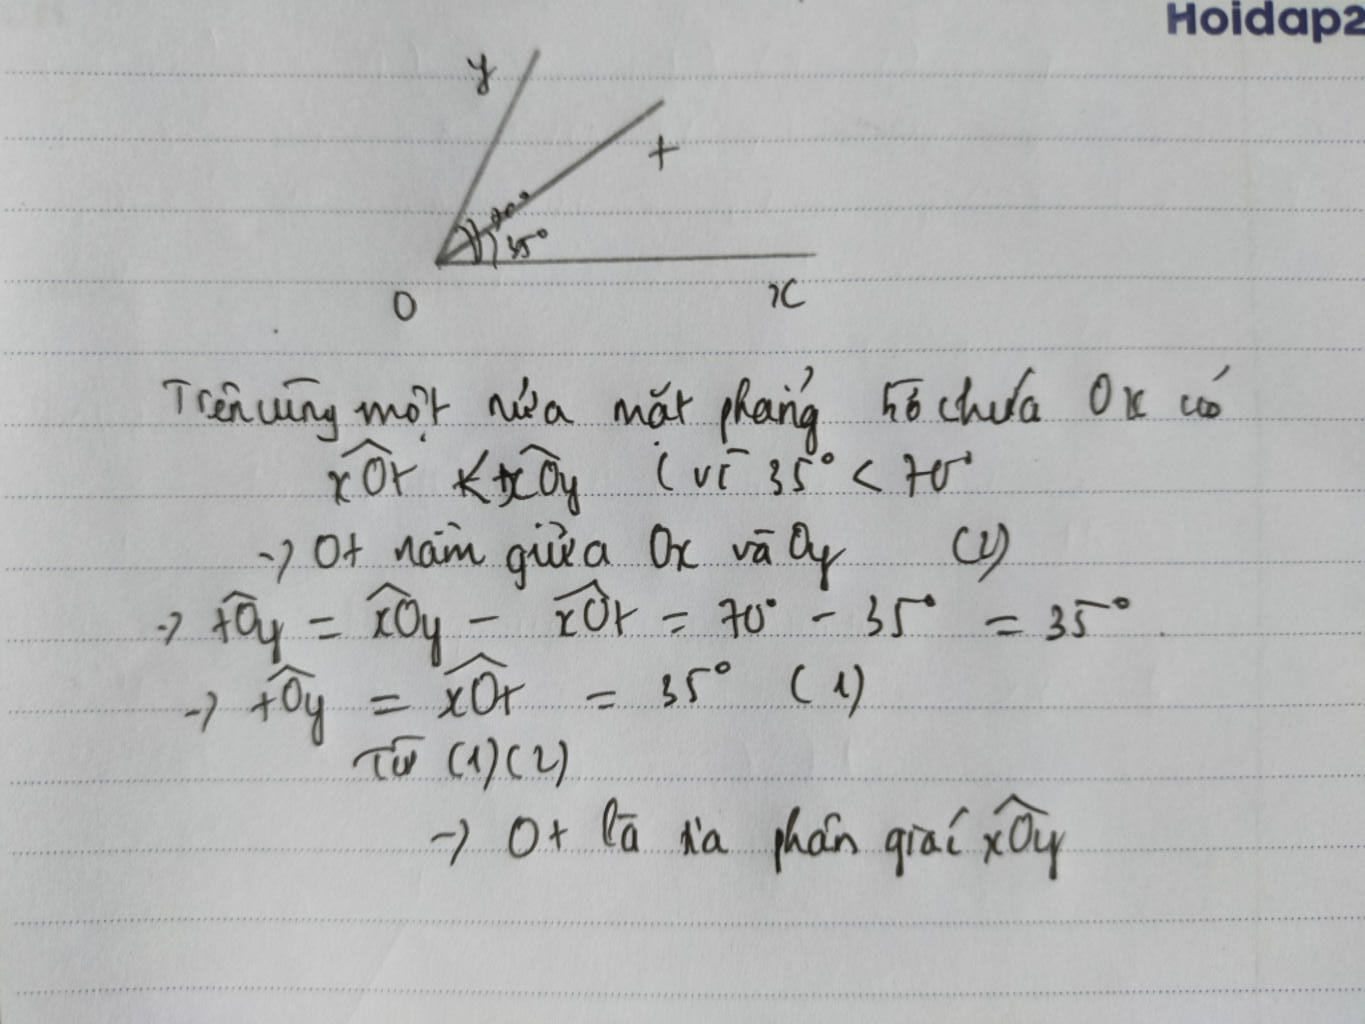 Hoidap2
y
t
70°
35°
O
x
Trên cùng một nửa mặt phẳng bờ chứa Ox có
xOt < xOy (vì 35° < 70°
→ Ot nằm giữa Ox và Oy (2)
→ tOy = xOy - xOt = 70° - 35° = 35°
→ tOy = xOt = 35° (1)
Từ (1)(2)
→ Ot là tia phân giác xOy